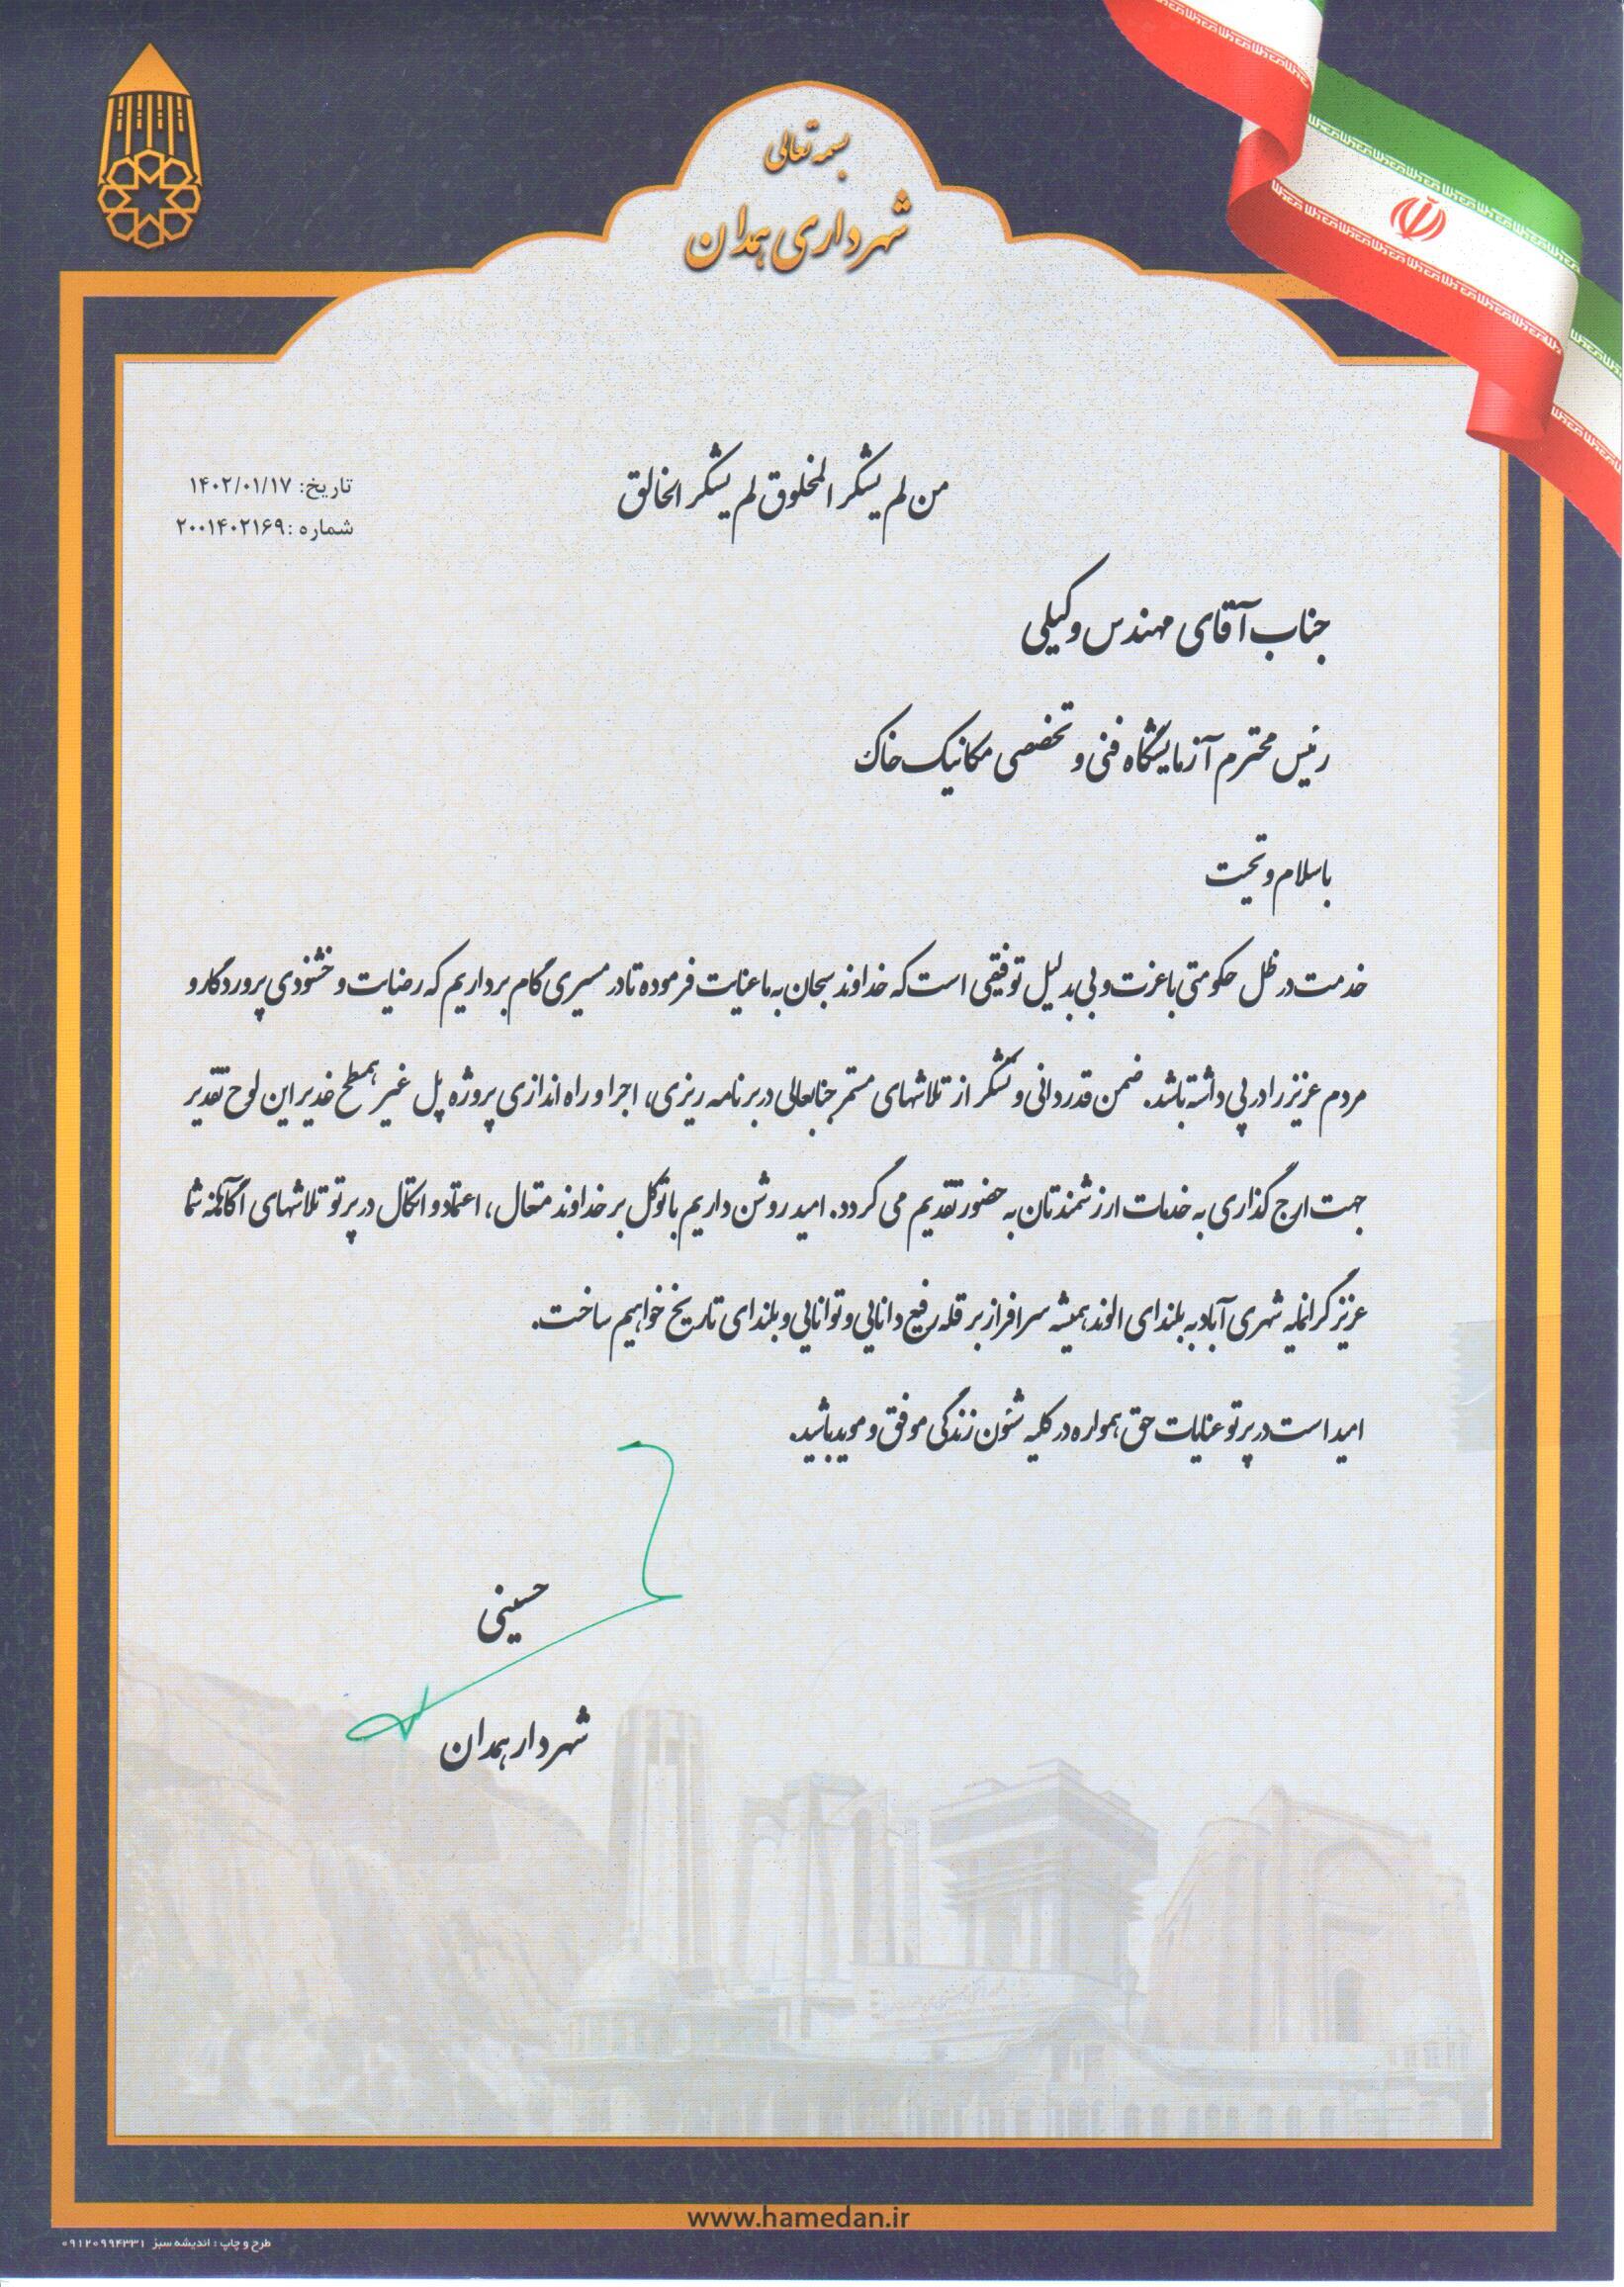 بسمه تعالی
شهرداری همدان
تاریخ: ۱۴۰۲/۰۱/۱۷
شماره: ۲۰۰۱۴۰۲۱۶۹
من لم یشکر المخلوق لم یشکر الخالق
جناب آقای مهندس وکیلی
رئیس محترم آزمایشگاه فنی و تخصصی مکانیک خاک
باسلام و تحیت
خدمت در ظل حکومتی با عزت و بی بدلیل توفیقی است که خداوند سبحان به ما عنایت فرموده تا در مسیری گام برداریم که رضایت و خشنودی پروردگار و
مردم عزیز را در پی داشته باشد. ضمن قدردانی و تشکر از تلاشهای مستمر جنابعالی در برنامه ریزی، اجرا و راه اندازی پروژه پل غیر همسطح غدیر این لوح تقدیر
جهت ارج گذاری به خدمات ارزشمندتان به حضور تقدیم می گردد. امید روشن داریم با توکل بر خداوند متعال، اعتماد و اتکال در پرتو تلاشهای آگاهانه شما
عزیز گرانمایه شهری آباد به بلندای الوند، همیشه سرافراز بر قله رفیع دانایی و توانایی و بلندای تاریخ خواهیم ساخت.
امید است در پرتو عنایات حق همواره در کلیه شئون زندگی موفق و موید باشید.
حسینی
شهردار همدان
www.hamedan.ir
طرح و چاپ : اندیشه سبز ۰۹۱۲۰۹۹۴۳۳۱